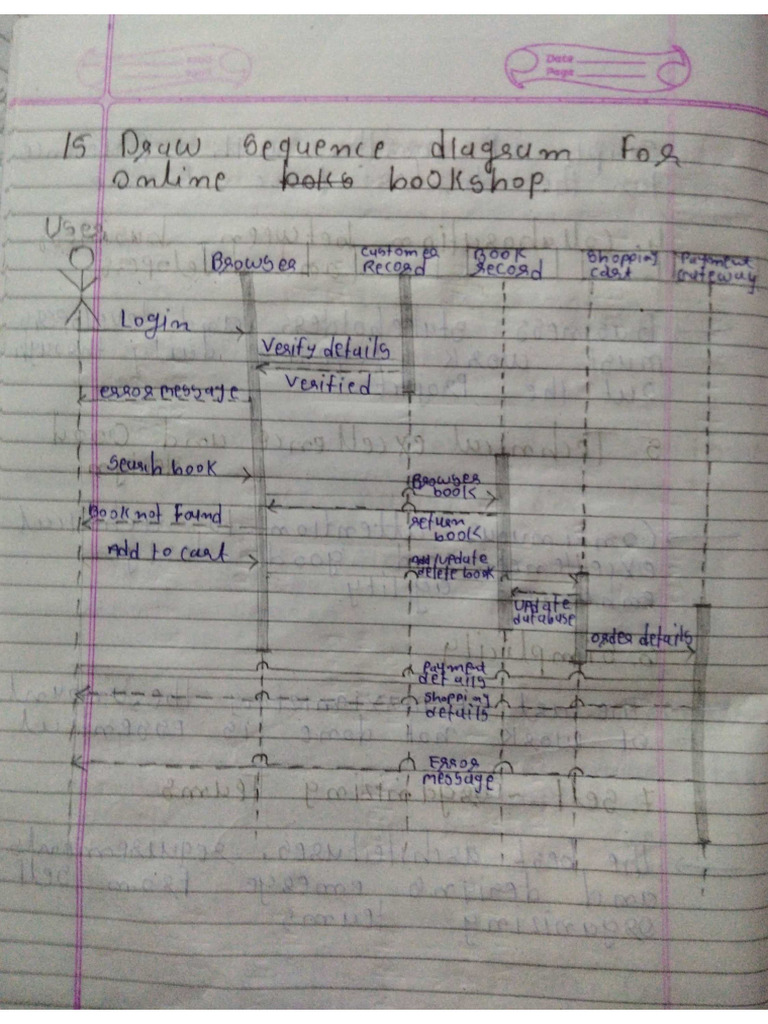 Date
Page
15 Draw sequence diagram for
online boks bookshop.
User
Browser
Customer
Record
Book
record
Shopping
cart
Payment
Gateway
Login
Verify details
Verified
error message
Search book
Browser
book
return
book
Book not found
Add to cart
update
delete book
update
database
order details
Payment
details
Shopping
details
Error
message